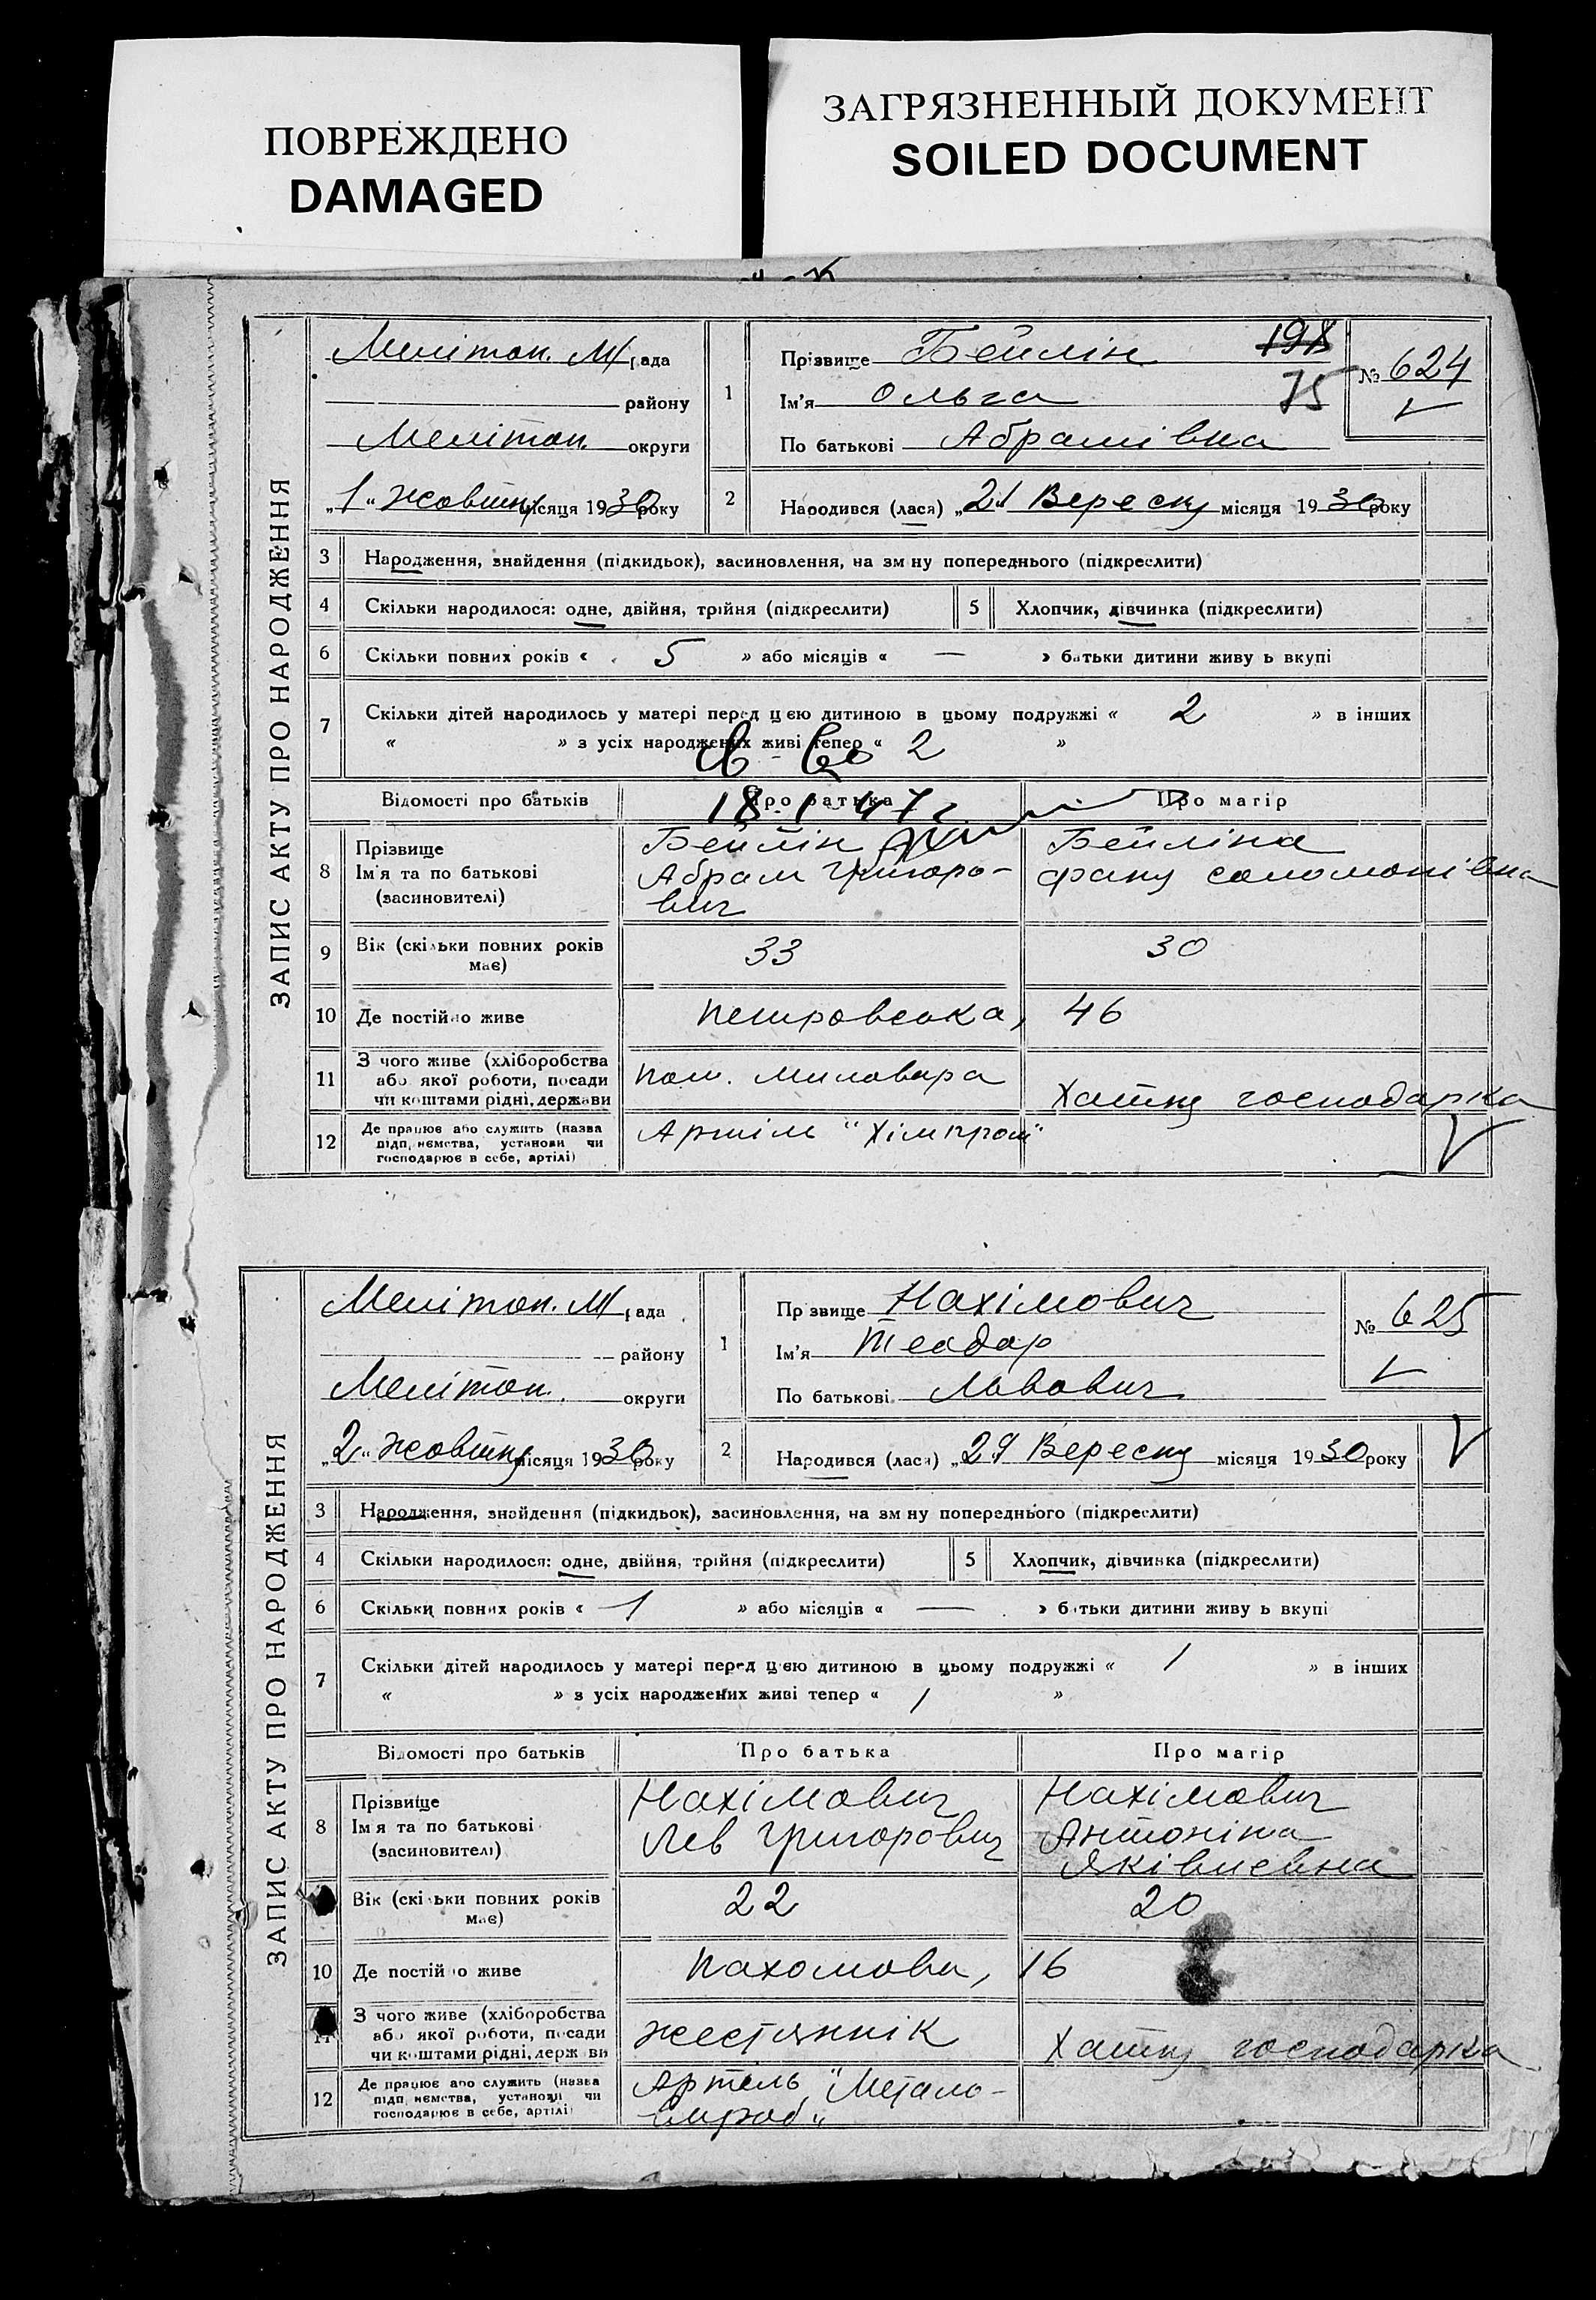 ПОВРЕЖДЕНО
DAMAGED
ЗАГРЯЗНЕННЫЙ ДОКУМЕНТ
SOILED DOCUMENT
ЗАПИС АКТУ ПРО НАРОДЖЕННЯ
Мелітоп. М/рада
району
Мелітоп. округи
„1“ Жовтня місяця 1930 року
1 Прізвище Бейлін 198
Ім'я Ольга 75
По батькові Абрамівна
№ 624
2 Народився (лася) „21“ Вересня місяця 1930 року
3 Народження, знайдення (підкидьок), засиновлення, на зм ну попереднього (підкреслити)
4 Скільки народилося: одне, двійня, трійня (підкреслити) 5 Хлопчик, дівчинка (підкреслити)
6 Скільки повних років « 5 » або місяців « — » батьки дитини живу ь вкупі
7 Скільки дітей народилось у матері перед цією дитиною в цьому подружжі « 2 » в інших
« » з усіх народжених живі тепер « 2 »
18-1-47г
Відомості про батьків Про батька Про матір
8 Прізвище Ім'я та по батькові (засиновителі)
Бейлін Абрам Григоро-
вич
Бейліна
Фаня Соломонівна
9 Вік (скільки повних років має) 33 30
10 Де постійно живе Петровська, 46
11 З чого живе (хліборобства
або якої роботи, посади
чи коштами рідні, держави
Пом. миловара Хатня господарка
12 Де працює або служить (назва
підп, нємства, установи чи
господарює в себе, артілі)
Артіль "Хімпром"
ЗАПИС АКТУ ПРО НАРОДЖЕННЯ
Мелітоп. М/рада
району
Мелітоп. округи
„2“ Жовтня місяця 1930 року
1 Пр звище Нахімович
Ім'я Теодор
По батькові Львович
№ 625
2 Народився (лася) „29 Вересня місяця 1930 року
3 Народження, знайдення (підкидьок), засиновлення, на зм ну попереднього (підкреслити)
4 Скільки народилося: одне, двійня, трійня (підкреслити) 5 Хлопчик, дівчинка (підкреслити)
6 Скільки повних років « 1 » або місяців « — » батьки дитини живу ь вкупі
7 Скільки дітей народилось у матері перед цією дитиною в цьому подружжі « 1 » в інших
« » з усіх народжених живі тепер « 1 »
Відомості про батьків Про батька Про матір
8 Прізвище Ім'я та по батькові (засиновителі)
Нахімович
Лев Григорович
Нахімович
Антоніна
Яківлевна
Вік (скільки повних років має) 22 20
10 Де постійно живе Пахомова, 16
11 З чого живе (хліборобства
або якої роботи, посади
чи коштами рідні, держ ви
Жестяннік Хатня господарка
12 Де працює або служить (назва
підп нємства, установи чи
господарює в себе, артілі)
Артель "Метало-
вироб"